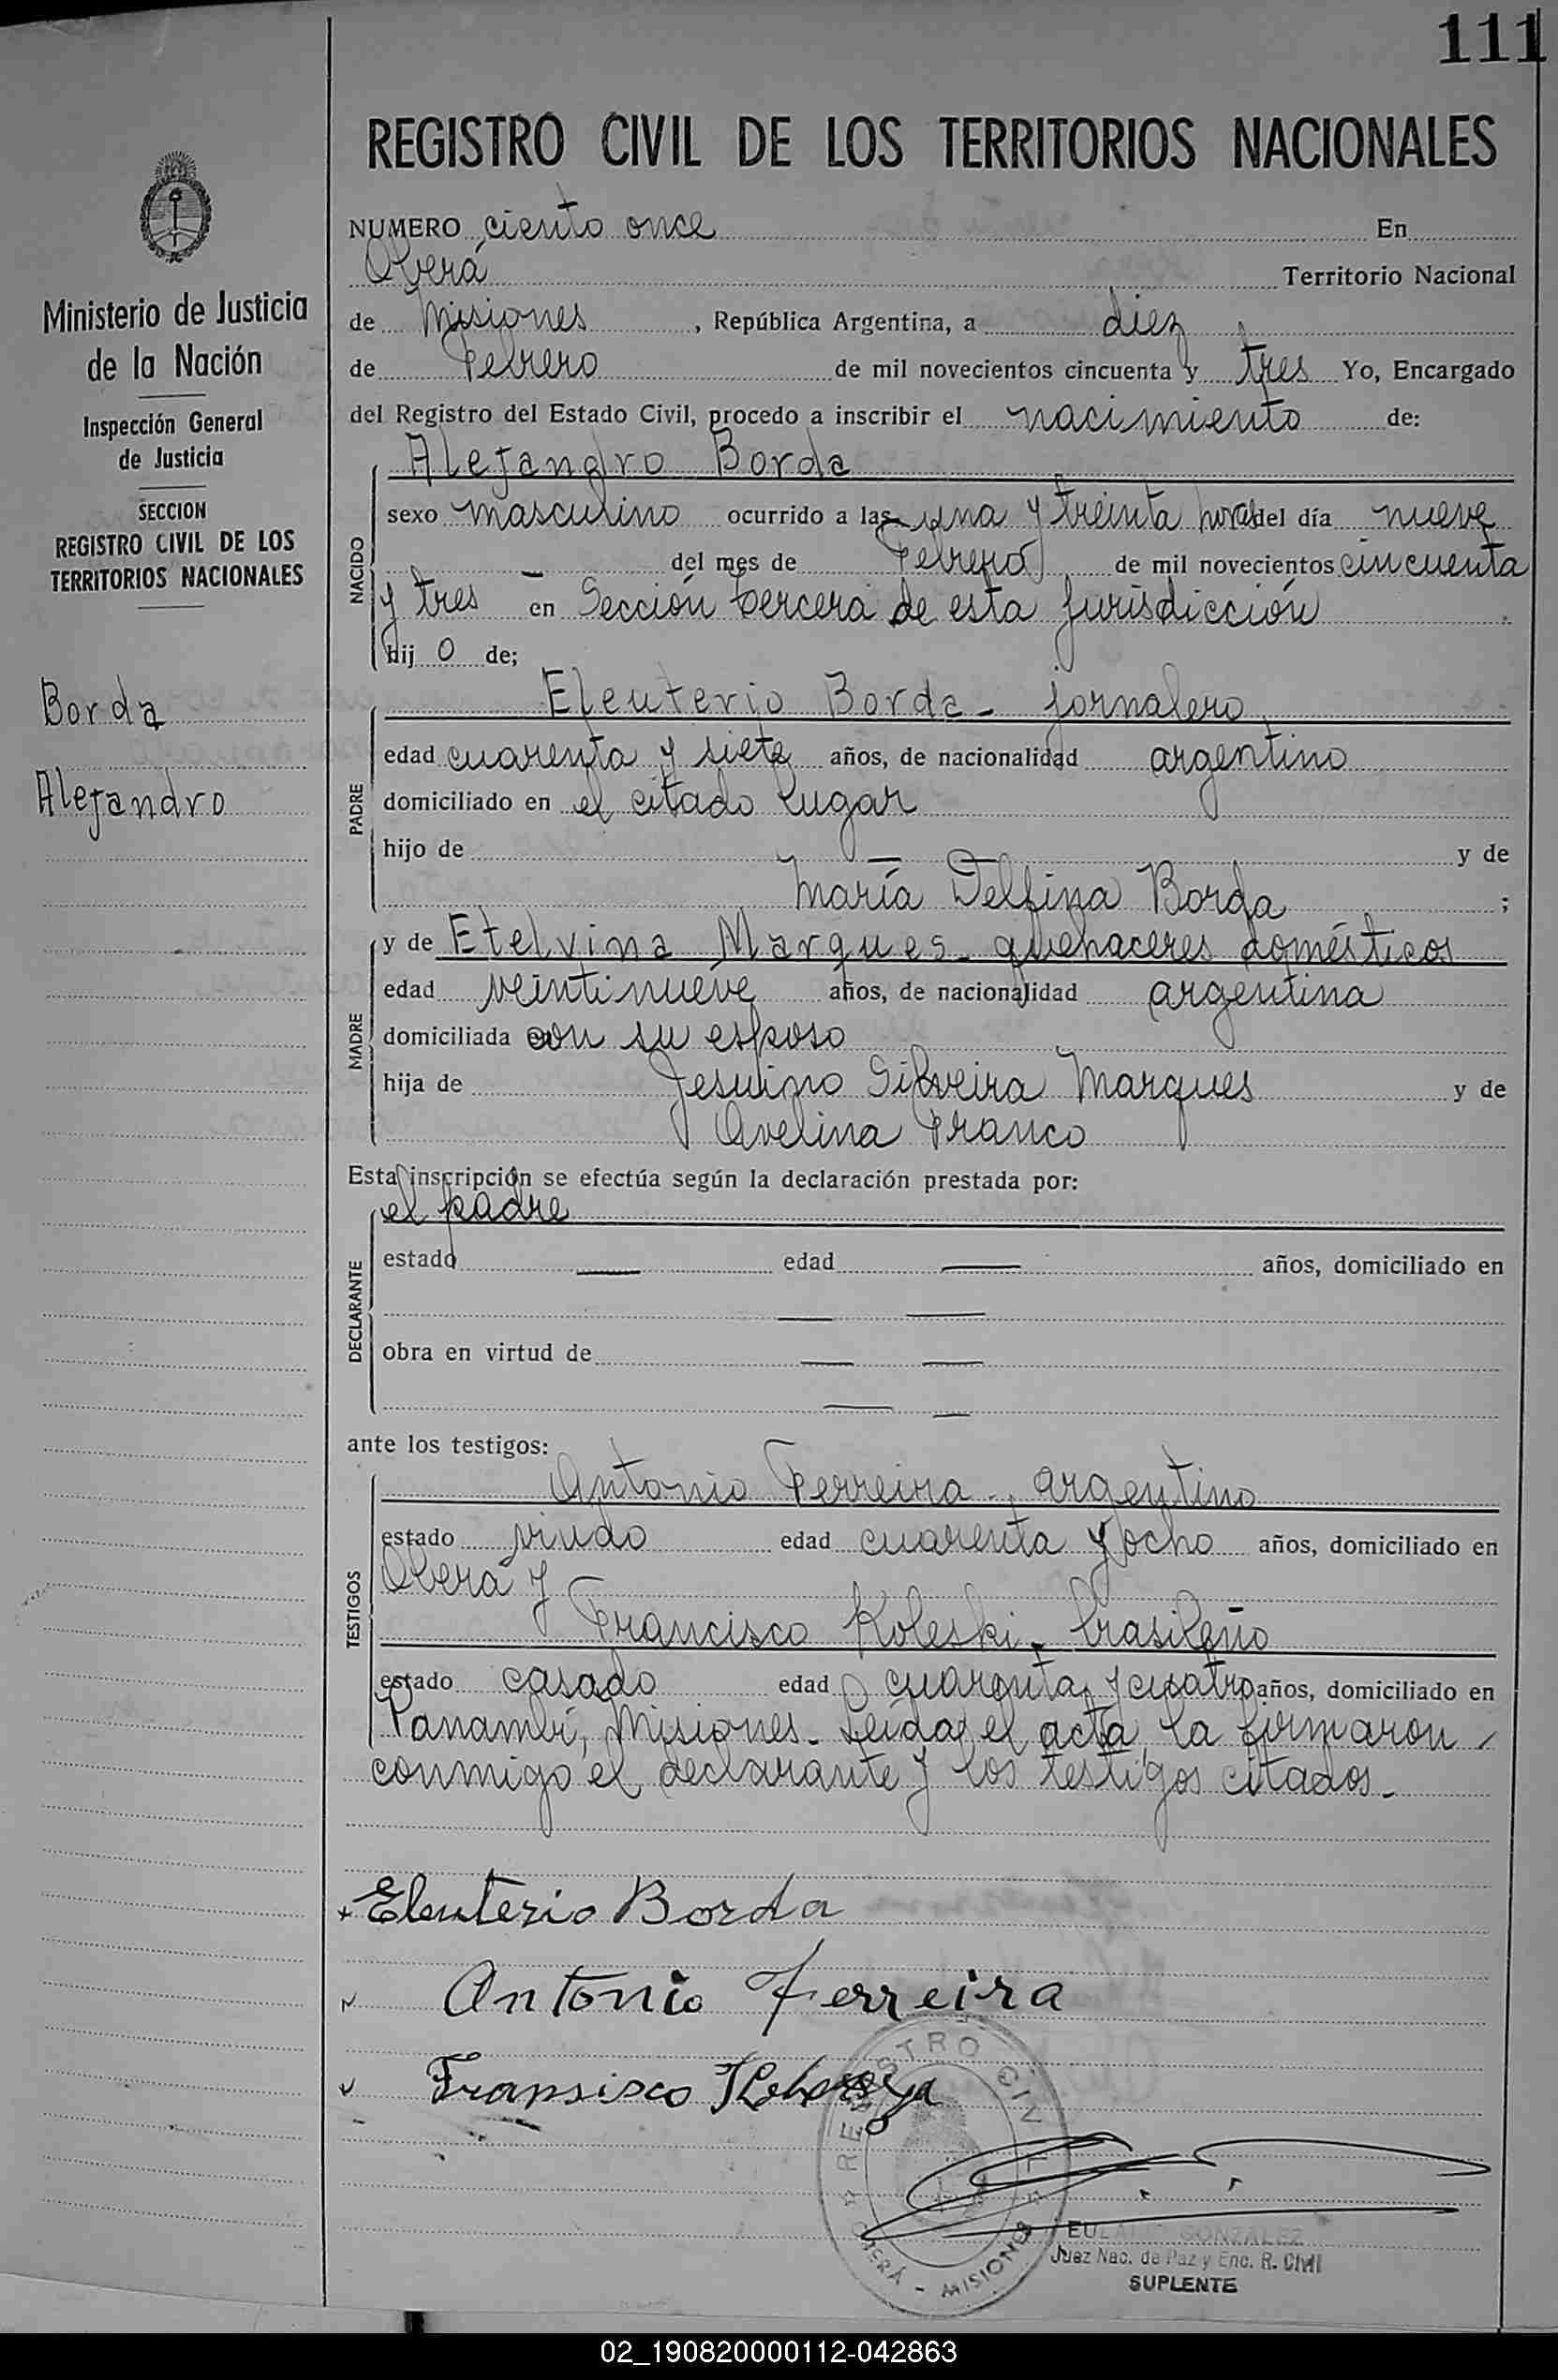 111
REGISTRO CIVIL DE LOS TERRITORIOS NACIONALES
Ministerio de Justicia
de la Nación
Inspección General
de Justicia
SECCION
REGISTRO CIVIL DE LOS
TERRITORIOS NACIONALES
Borda
Alejandro
NUMERO ciento once En
Oberá Territorio Nacional
de Misiones, República Argentina, a diez
de Febrero de mil novecientos cincuenta y tres Yo, Encargado
del Registro del Estado Civil, procedo a inscribir el nacimiento de:
Alejandro Borda
NACIDO
sexo masculino ocurrido a las una y treinta horas del día nueve
— del mes de Febrero de mil novecientos cincuenta
y tres en Sección tercera de esta jurisdicción.
hij o de;
Eleuterio Borda - jornalero
PADRE
edad cuarenta y siete años, de nacionalidad argentino
domiciliado en el citado lugar
hijo de — — y de
María Delfina Borda ;
MADRE
y de Etelvina Marques - quehaceres domésticos
edad veintinueve años, de nacionalidad argentina
domiciliada con su esposo
hija de Jesuino Silveira Marques y de
Avelina Franco
Esta inscripción se efectúa según la declaración prestada por:
el padre
DECLARANTE
estado — edad — años, domiciliado en
— —
obra en virtud de — —
— —
ante los testigos:
TESTIGOS
Antonio Ferreira - argentino
estado viudo edad cuarenta y ocho años, domiciliado en
Oberá y
Francisco Koleski - brasileño
estado casado edad cuarenta y cuatro años, domiciliado en
Panambí, Misiones. Leída el acta, la firmaron
conmigo el declarante y los testigos citados.-
Eleuterio Borda
Antonio Ferreira
Fransisco
REGISTRO CIVIL
OBERÁ - MISIONES
EULALIO GONZALEZ
Juez Nac. de Paz y Enc. R. Civil
SUPLENTE
02_190820000112-042863